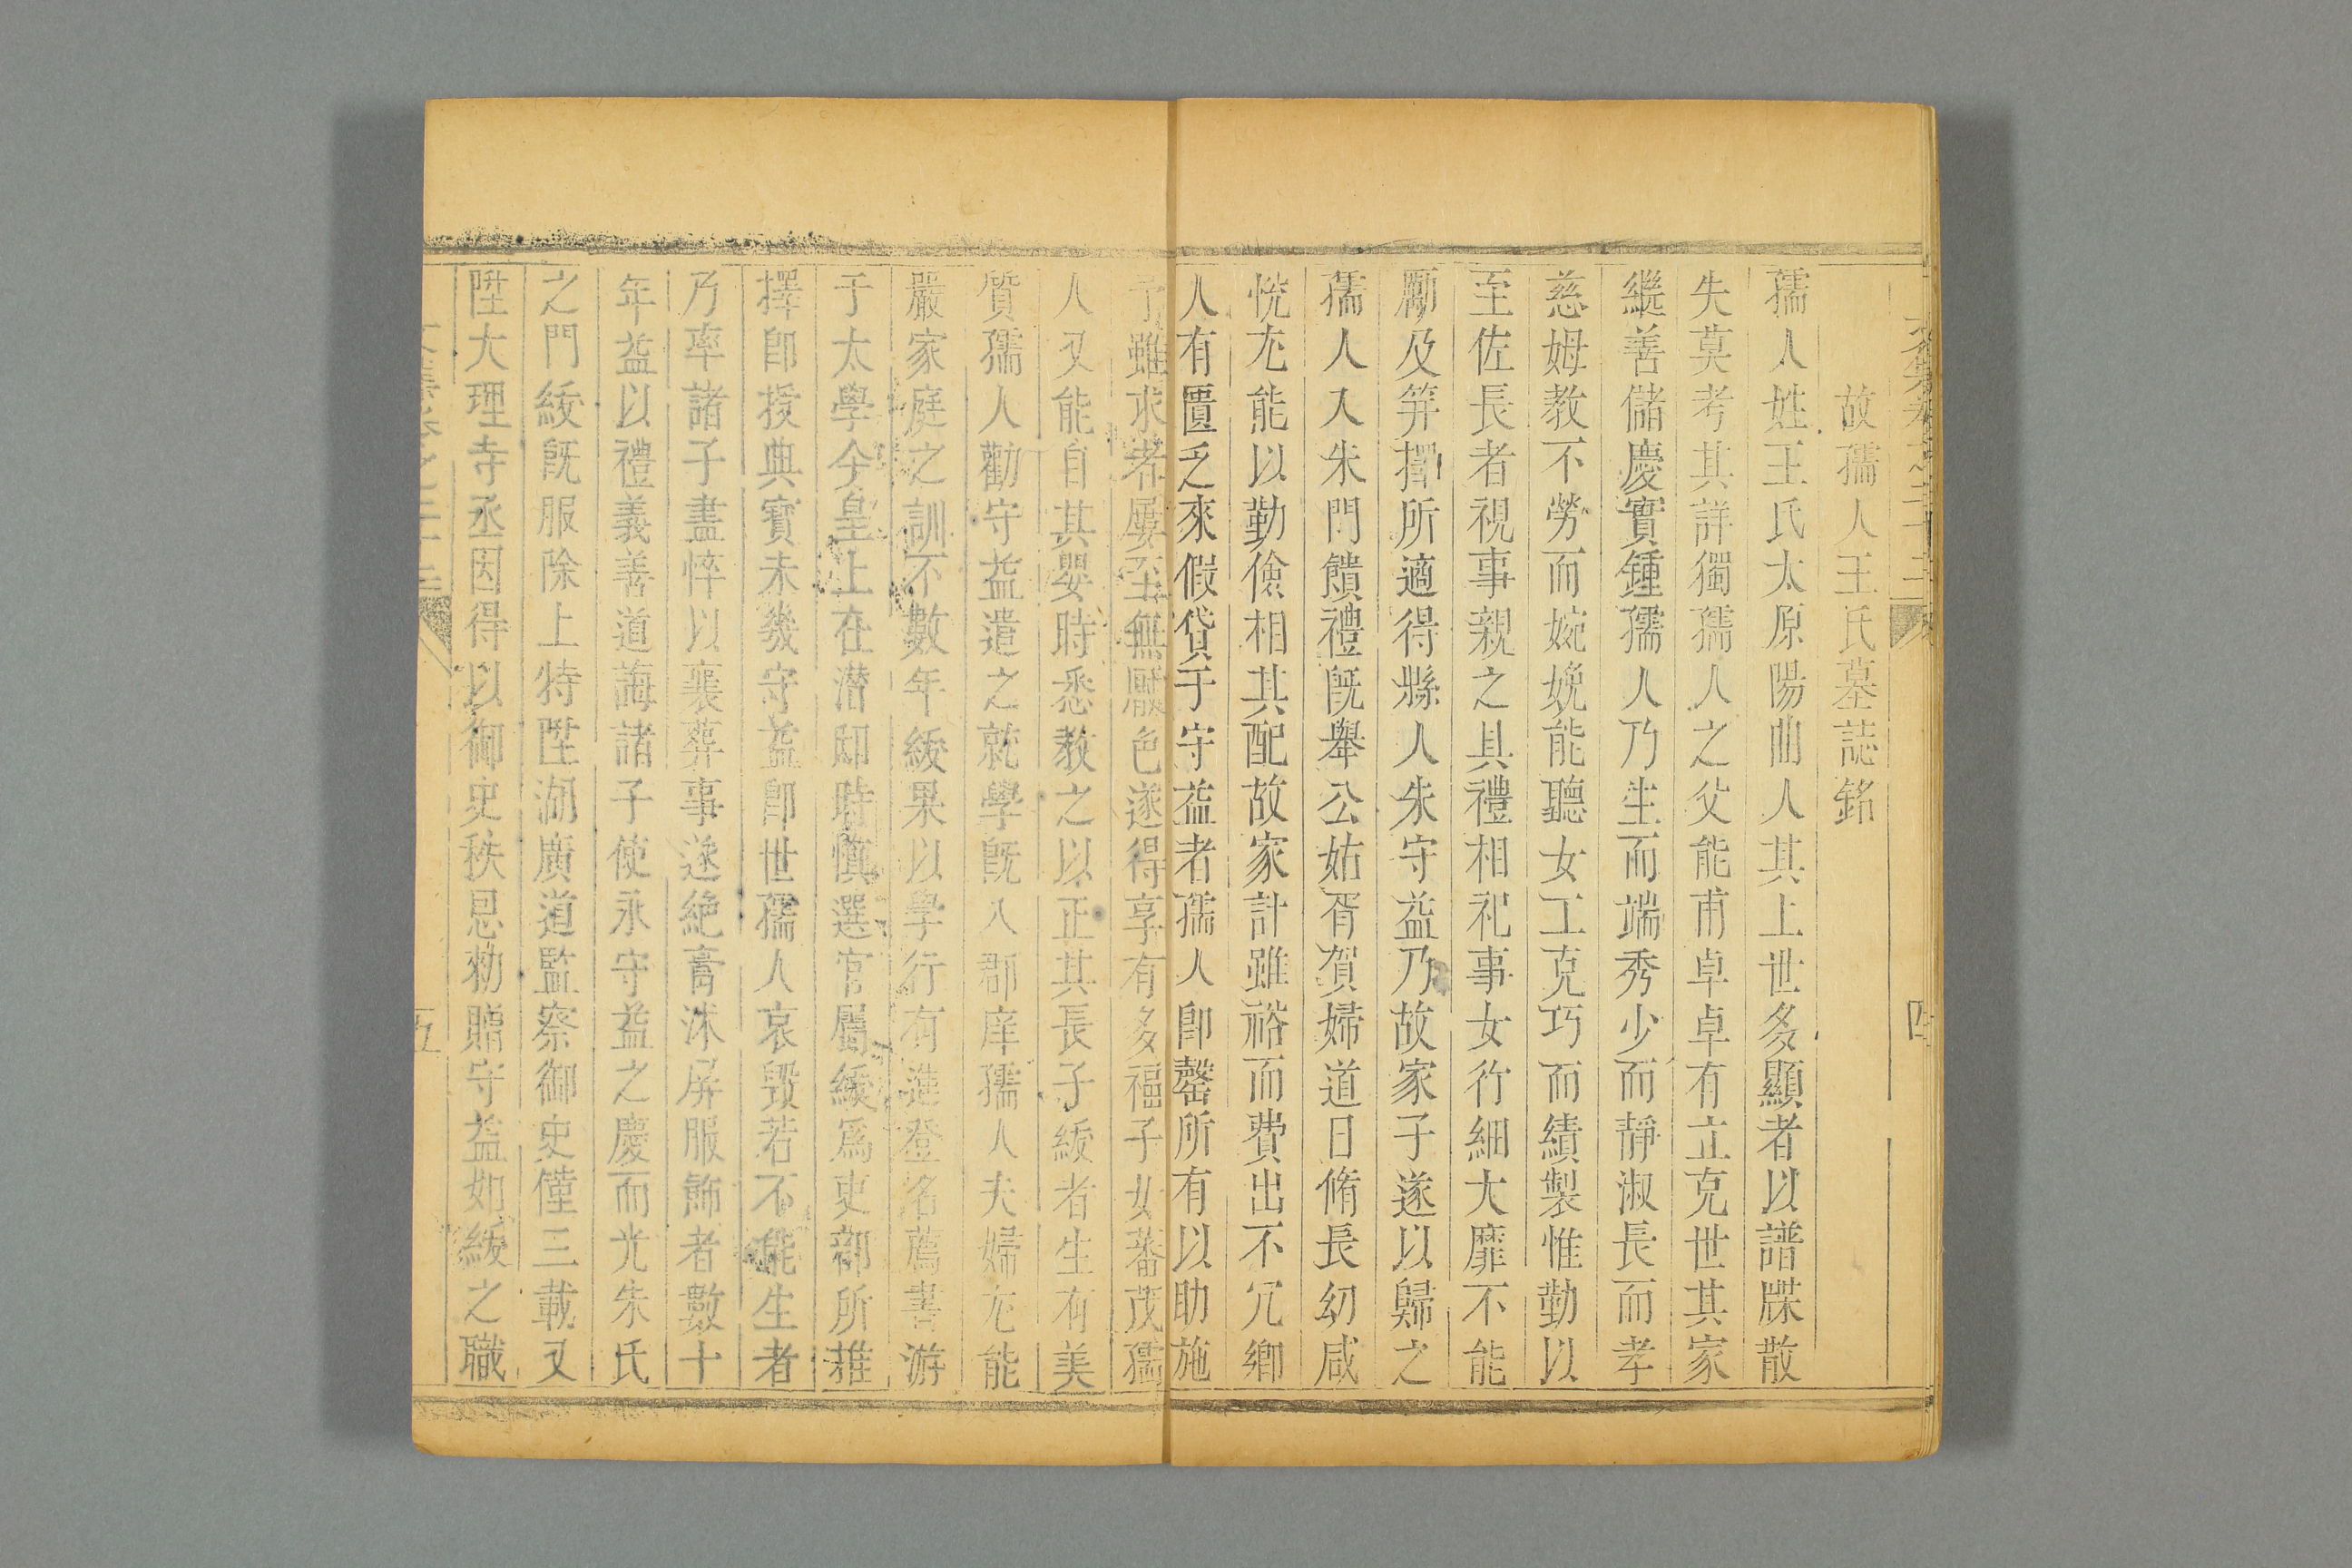 故孺人王氏墓誌銘
孺人姓王氏太原陽曲人其上世多顯者以譜牒散
失莫考其詳獨孺人之父能甫卓卓有立克世其家
繼善儲慶實鍾孺人乃生而端秀少而靜淑長而孝
慈姆教不勞而婉娩能聽女工克巧而績製惟勤以
至佐長者視事親之具禮相祀事女行細大靡不能
勵及笄擇所適得縣人朱守益乃故家子遂以歸之
孺人入朱門饋禮旣舉公姑胥賀婦道日脩長幼咸
恱尤能以勤儉相其配故家計雖裕而費出不冗鄉
人有匱乏來假貸于守益者孺人卽罄所有以助施
予雖求者屢至無厭色遂得享有多福子女蕃茂孺
人又能自其嬰時悉教之以正其長子綬者生有美
質孺人勸守益遣之就學旣入郡庠孺人夫婦尤能
嚴家庭之訓不數年綬果以學行有進登名薦書游
于太學今皇上在潜邸時慎選官屬綬爲吏部所推
擇卽授典寶未幾守益卽世孺人哀毀若不能生者
乃率諸子盡悴以襄葬事遂絶膏沐屏服飾者數十
年益以禮義善道誨諸子使永守益之慶而光朱氏
之門綬旣服除上特陞湖廣道監察御史僅三載又
陞大理寺丞因得以御史秩恩勑贈守益如綬之職
五